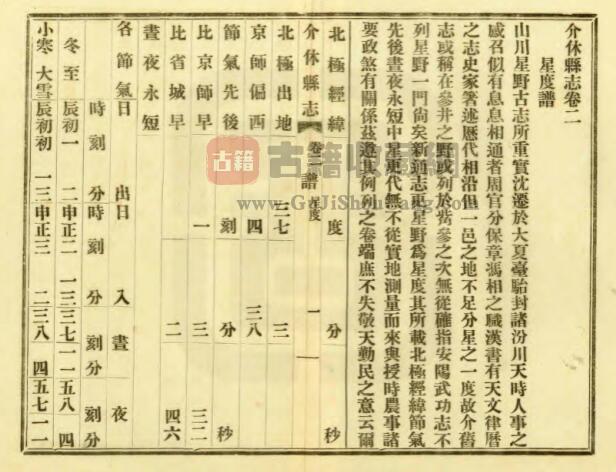 介休縣志卷二
星度譜
山川星野古志所重實沈遷於大夏臺駘封諸汾川天時人事之
感召似有息息相通者周官分保章馮相之職漢書有天文律曆
之志史家著述歷代相沿但一邑之地不足分星之一度故介舊
志或稱在參井之野或列於觜參之次無從確指安陽武功志不
列星野一門尚矣新通志更星野爲星度其所載北極經緯節氣
先後晝夜永短中星更代無不從實地測量而來與授時農事諸
要政煞有關係茲遵其例列之卷端庶不失敬天勤民之意云爾
介休縣志 卷 譜 星度 一
北極經緯 度 分 秒
北極出地 三七 三
京師偏西 四 三八
節氣先後 刻 分 秒
比京師早 一 三 三二
比省城早 二 四六
晝夜永短
各節氣 日出 日入 晝 夜
時刻 分 時刻 分 刻分 刻分
冬至 辰初一 二 申正二 一三 三七 一一 五八 四
小寒 大雪 辰初初 一三 申正三 二 三八 四 五七 一一
古籍
古籍收藏網
www.GuJiShouCang.com